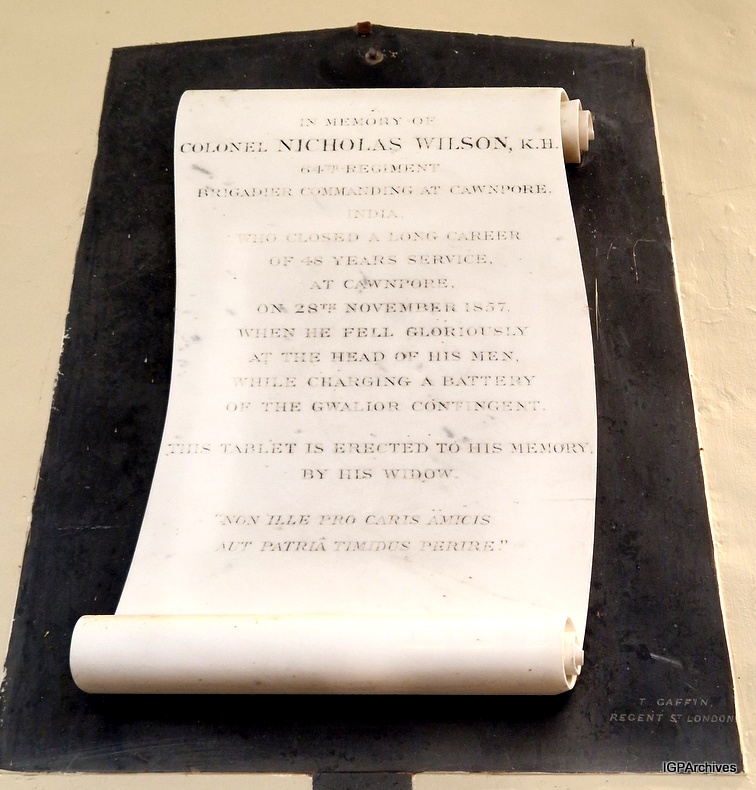 IN MEMORY OF
COLONEL NICHOLAS WILSON, K.H.
64TH REGIMENT
BRIGADIER COMMANDING AT CAWNPORE,
INDIA,
WHO CLOSED A LONG CAREER
OF 48 YEARS SERVICE,
AT CAWNPORE,
ON 28TH NOVEMBER 1857,
WHEN HE FELL GLORIOUSLY
AT THE HEAD OF HIS MEN,
WHILE CHARGING A BATTERY
OF THE GWALIOR CONTINGENT.
THIS TABLET IS ERECTED TO HIS MEMORY,
BY HIS WIDOW.
"NON ILLE PRO CARIS AMICIS
AUT PATRIÂ TIMIDUS PERIRE."
T. GAFFIN,
REGENT ST LONDON
IGPArchives